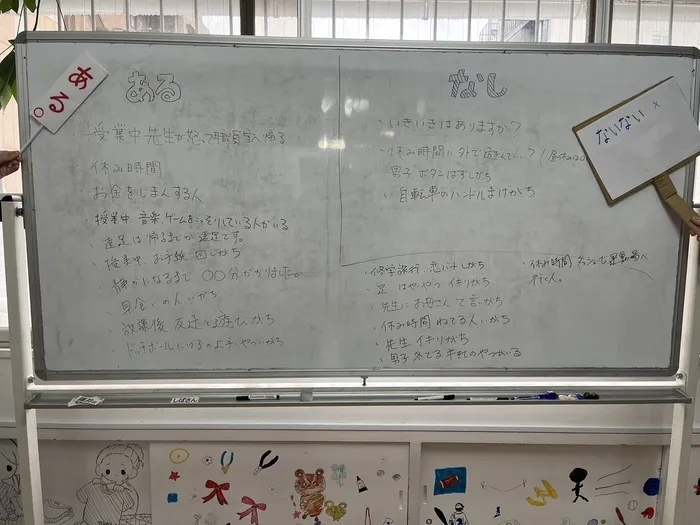 ある
ある。
・授業中先生が怒って職員室へ帰る
・休み時間
・お金をじまんする人
・授業中 音楽 ゲームをこっそりしている人がいる
・遠足は帰るまでが遠足です。
・授業中 お手紙 回しがち
・静かになるまで 〇〇分かかりました。
・早食いの人いがち
・放課後 友達と遊びがち
・ドッチボール にげるの上手いやついがち
なし
ないない ×
・いきいきはありますか?
・休み時間に外で遊んでい?(昼休みない)
・男子 ボタンはずしがち
・自転車のハンドルまげがち
・修学旅行 恋バナしがち
・足 はやいやつ イキりがち
・先生にお母さんて言いがち
・休み時間 ねてる人いがち
・先生 イキりがち
・男子 冬でも半そでのやついる
・休み時間 ダッシュで 運動場へ
行く人。
しばさん